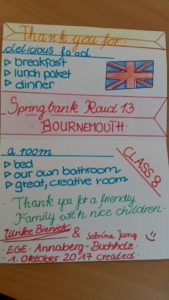 Thank you for
delicious food
▷ breakfast
▷ lunch paket
▷ dinner
Springbank Raud 13
BOURNEMOUTH
a room
▷ bed
▷ our own bathroom
▷ great, creative room
CLASS 8
Thank you for a friendly
Family with nice children.
Ulrike Bieniek & Sabrina Jung
EGE - Annaberg - Buchholz
1. Oktober 2017 created